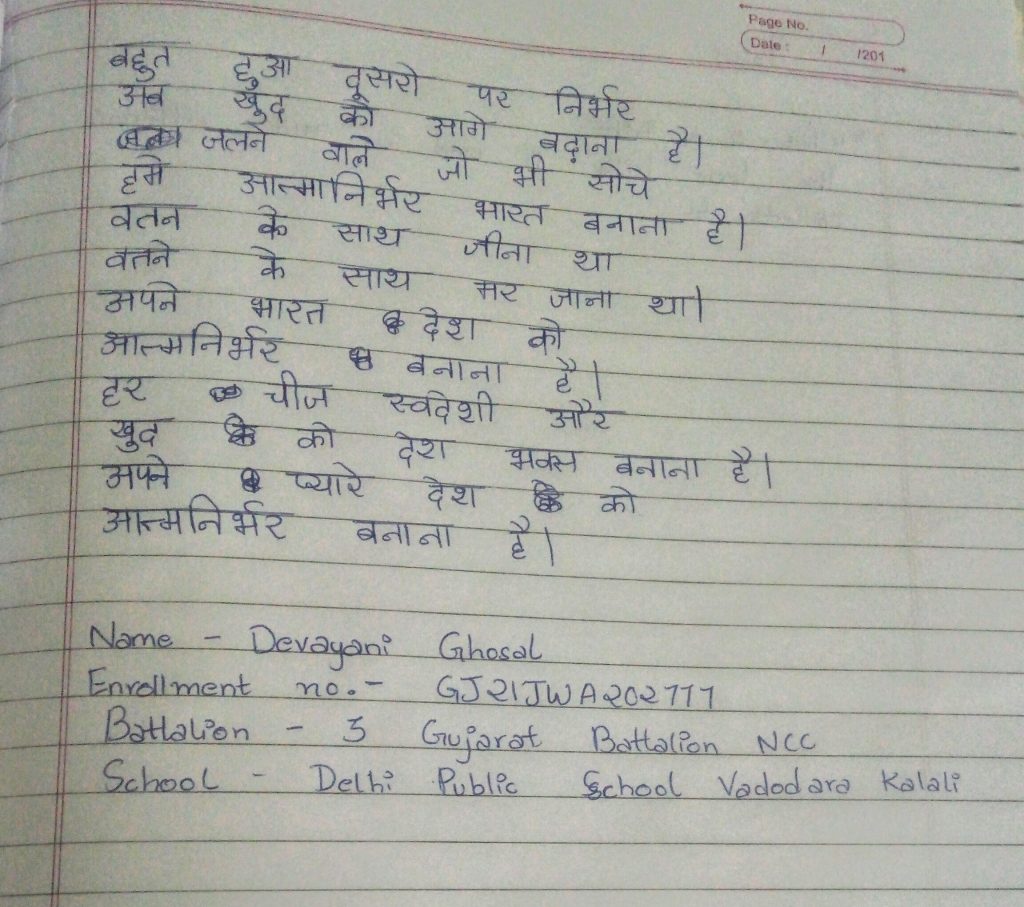 Page No.
Date : / /201
बहुत हुआ दूसरो पर निर्भर
अब खुद को आगे बढ़ाना है।
जलने वाले जो भी सोचे
हमे आत्मानिर्भर भारत बनाना है।
वतन के साथ जीना था
वतने के साथ मर जाना था।
अपने भारत देश को
आत्मनिर्भर बनाना है।
हर चीज स्वदेशी और
खुद को देश भक्स बनाना है।
अपने प्यारे देश को
आत्मनिर्भर बनाना है।
Name - Devayani Ghosal
Enrollment no.- GJ21JWA202777
Battalion - 3 Gujarat Battalion NCC
School - Delhi Public School Vadodara Kalali